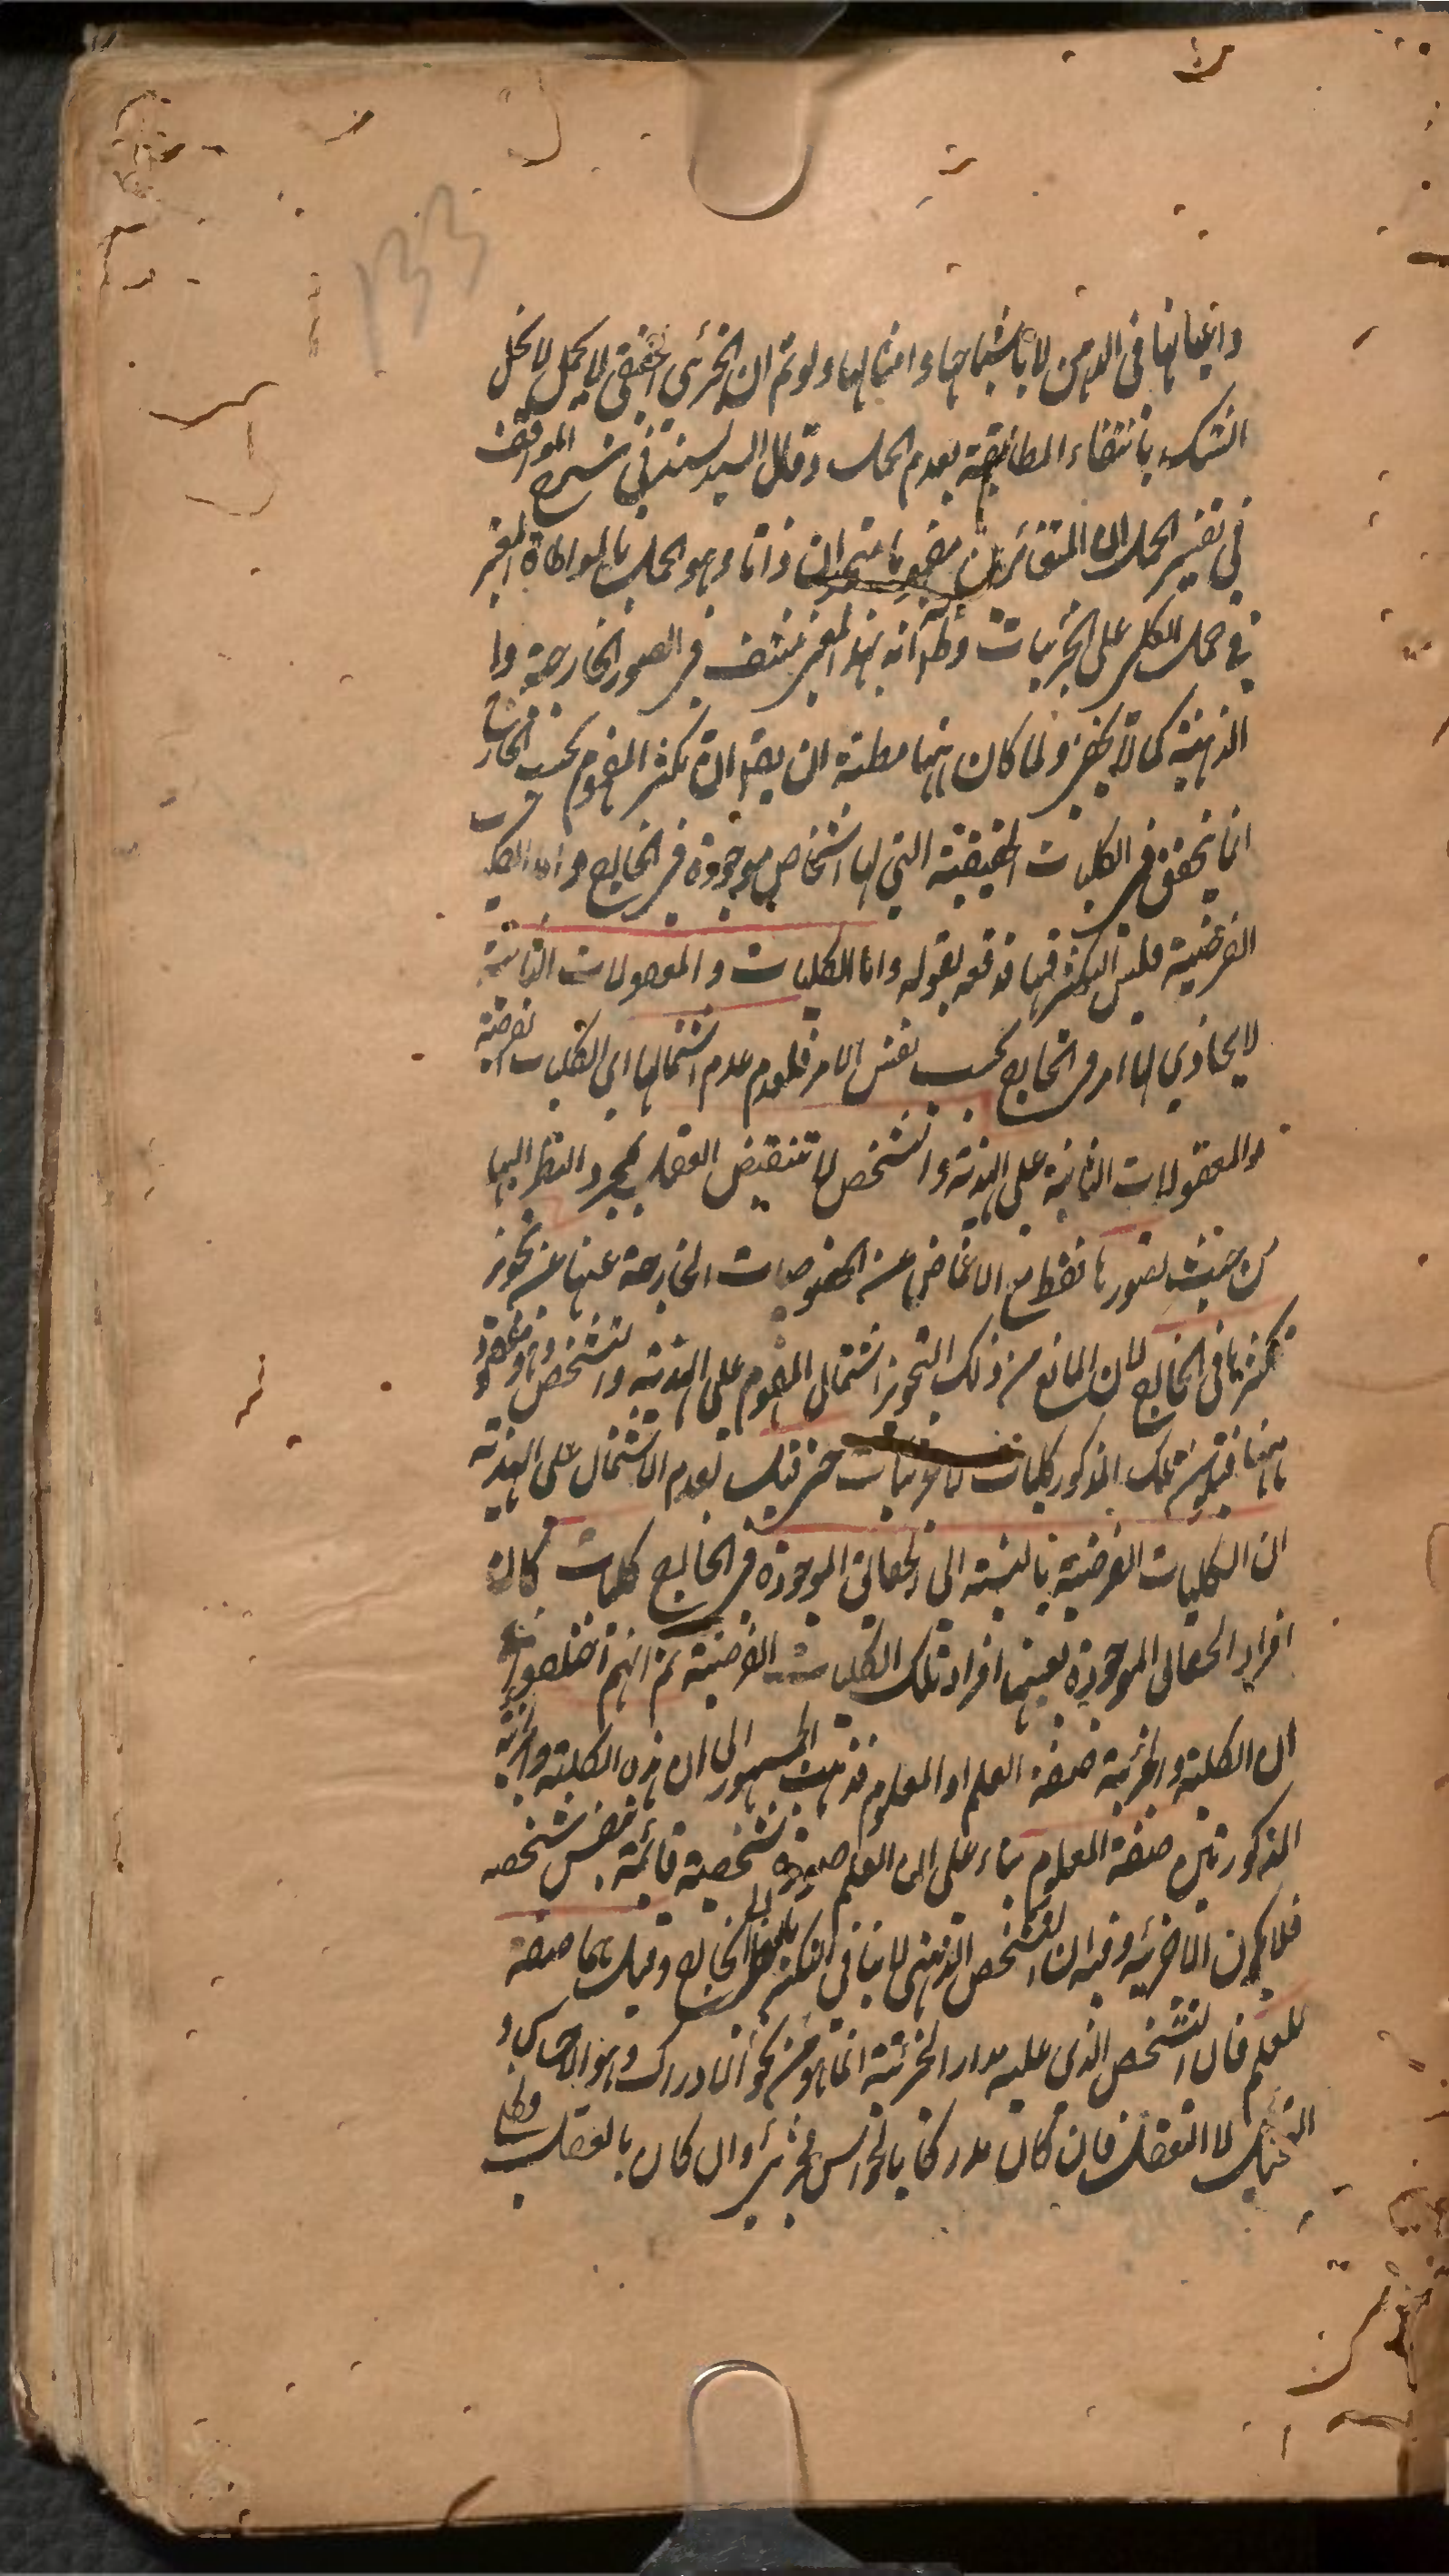 133
واعيانها فى الذهن لا باشباحها وامثالها ولو تم ان الجزئى الحقيقى لا يحمل لا نحل
الشك بانتفاء المطابقة بعدم الحمل وقال السيد السند فى شرح المواقف
فى تفسير الحمل ان المتغائرين مفهوما متحدان ذاتا وهو الحمل بالمواطاة المعتبر
فى حمل الكلى على الجزئيات وظ انه بهذا المعنى منتف فى الصور الخارجية وا
الذهنية كما لا يخفى ولما كان ههنا مظنة ان يقال ان تكثر المفهوم بحسب الخارج
انما يتحقق فى الكليات الحقيقية التى لها اشخاص موجودة فى الخارج واما الكليات
الفرضية فليس التكثر فيها فدفعه بقوله واما الكليات والمعقولات الثانية
لا يحاذى لها امر فى الخارج بحسب نفس الامر فلعدم عدم اشتمالها اى الكليات الفرضية
والمعقولات الثانية على الهذية والتشخص لا تنقبض العقل بمجرد النظر اليها
من حيث تصورها فقط مع الاغماض عن الخصوصات الخارجة عنها عن تجويز
تكثرها فى الخارج لان المانع من ذلك التجويز اشتمال المفهوم على الهذية والتشخص وهو مفقود
ههنا فتلك المذكور كليات لا جزئيات حتى قيل لعدم الاشتمال على الهذية
ان الكليات الفرضية بالنسبة الى الحقائق الموجودة فى الخارج كليات كان
افراد الحقائق الموجودة بعينها افراد تلك الكليات الفرضية ثم انهم اختلفوا فى
ان الكلية والجزئية صفة العلم او المعلوم فذهب الجمهور الى ان هذه الكلية والجزئية
المذكورتين صفة المعلوم بناء على ان العلم صورة شخصية قائمة بنفس شخصه
فلا يكون الا جزئية وفيه ان التشخص الذهنى لا ينافى التكثر بالنظر الى الخارج وقيل هما صفة
للعلم فان التشخص الذى عليه مدار الجزئية انما هو من نحو الادراك وهو الاحساس و
التخيل لا التعقل فان كان مدركا بالحواس فجزئى وان كان بالعقل فكلى